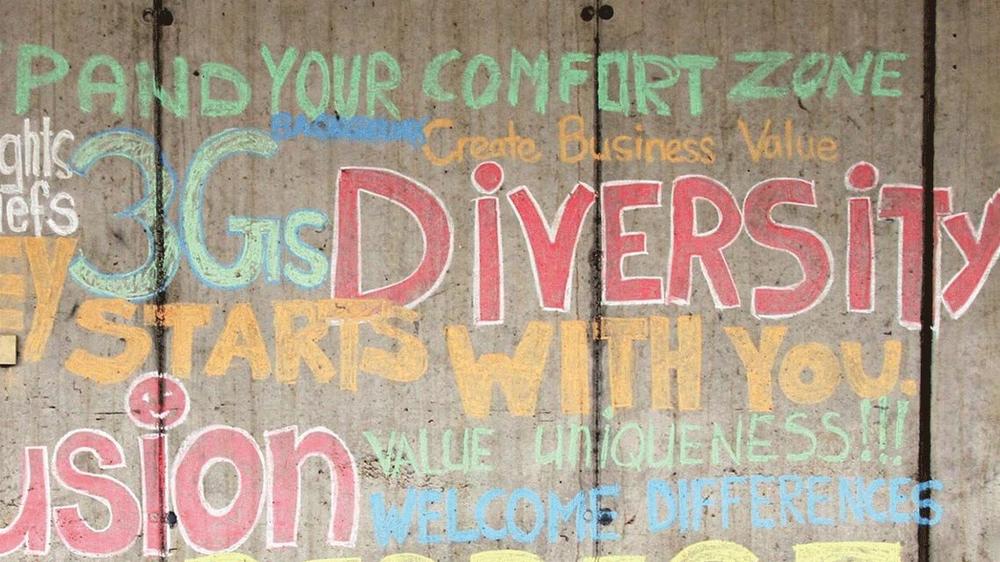 PAND YOUR COMFORT ZONE
ghts
BACKGROUND Create Business Value
iefs
3Gis DiVERSiTy
EY STARTS WITH YOU.
usion
VALUE UNiQUENESS!!!
WELCOME DIFFERENCES